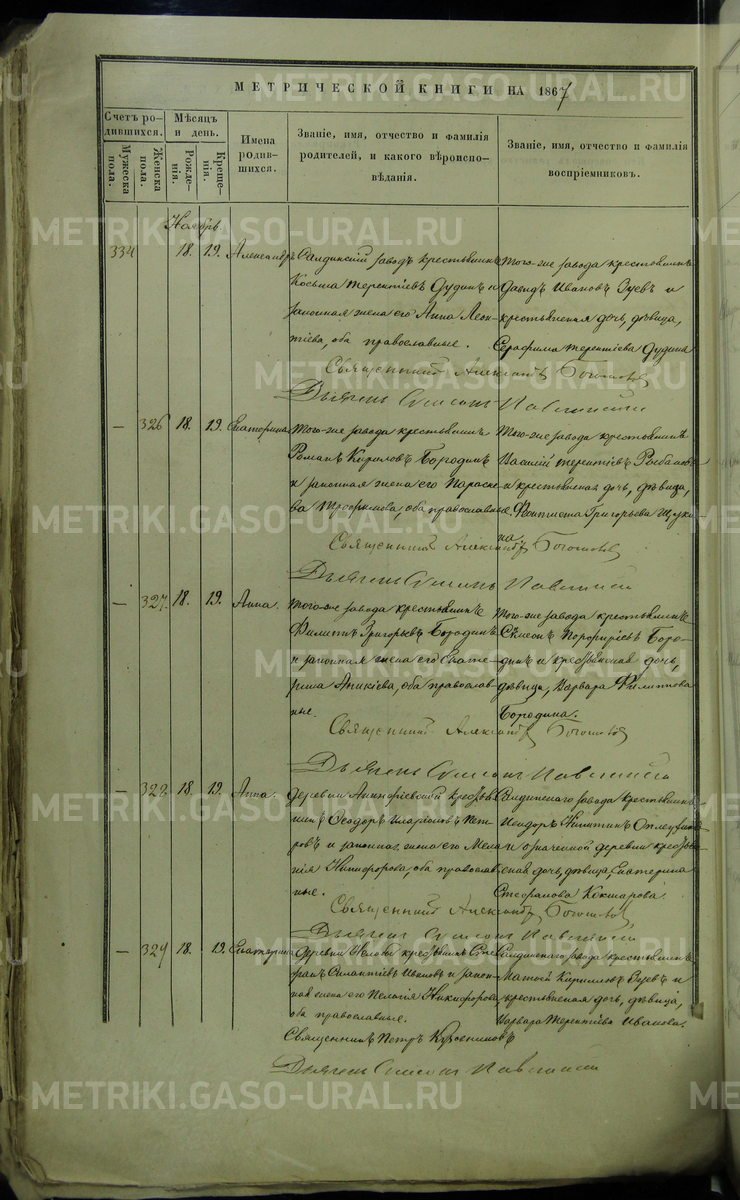 МЕТРИЧЕСКОЙ КНИГИ НА 1867
Счетъ родившихся.
Мужеска пола.
Женска пола.
Мѣсяцъ и день.
Рожденія.
Крещенія.
Имена родившихся.
Званіе, имя, отчество и фамилія родителей, и какого вѣроисповѣданія.
Званіе, имя, отчество и фамилія воспріемниковъ.
Ноябрь.
334 18. 19. Александръ
Салдинскій заводъ крестьянинъ
Косьма Терентіевъ Дудинъ и
законная жена его Анна Леон-
тіева, оба православные.
Того-же завода крестьянинъ
Давидъ Ивановъ Зуевъ и
крестьянская дочь, дѣвица,
Серафима Терентіева Дудина
Священникъ Александръ
Дьяконъ
— 326 18. 19. Екатерина
Того-же завода крестьянинъ
Романъ Кириловъ Бородинъ
и законная жена его Параске-
ва Трофимова, оба православные.
Того-же завода крестьянинъ
Василій Терентіевъ
и крестьянская дочь, дѣвица,
Григорьева
Священникъ Александръ
Дьяконъ
— 327. 18. 19. Анна.
Того-же завода крестьянинъ
Филиппъ Григорьевъ Бородинъ
и законная жена его Екате-
рина Аникіева, оба православ-
ные.
Того-же завода крестьянинъ
Симеонъ Порфиріевъ Боро-
динъ и крестьянская дочь,
дѣвица, Варвара Филиппова
Бородина.
Священникъ Александръ
Дьяконъ
— 328 18. 19. Анна.
Деревни
Ѳеодоръ Иларіоновъ Пет-
ровъ и законная жена его Мела-
нія Никифорова, оба православ-
ные.
Салдинскаго завода крестьянинъ
Исидоръ Никитинъ
и означенной деревни крестьян-
ская дочь, дѣвица, Екатерина
Стефанова Кокшарова.
Священникъ Александръ
Дьяконъ
— 329 18. 19. Екатерина
Деревни крестьянинъ Сте-
фанъ Силантіевъ Ивановъ и закон-
ная жена его Пелагія Никифорова,
оба православные.
Салдинскаго завода крестьянинъ
Матѳей Кирилловъ Зуевъ и
крестьянская дочь, дѣвица,
Варвара Терентіева Иванова.
Священникъ Петръ
Дьяконъ
METRIKI.GASO-URAL.RU